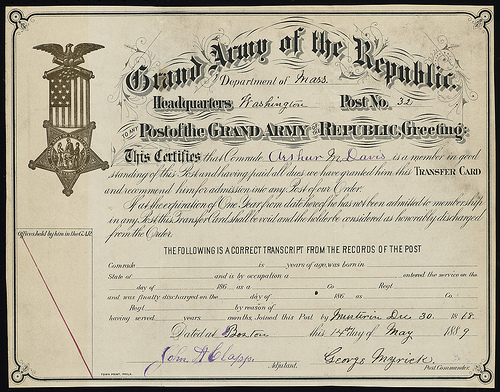 Grand Army of the Republic.
Department of Mass.
Headquarters Washington Post No. 32
TO ANY Post of the GRAND ARMY OF THE REPUBLIC, Greeting:
This Certifies that Comrade Arthur M Davis is a member in good
standing of this Post and having paid all dues we have granted him this TRANSFER CARD
and recommend him for admission into any Post of our Order.
If at the expiration of One Year from date hereof he has not been admitted to membership
in any Post this Transfer Card shall be void and the holder be considered as honorably discharged
from the Order.
Offices held by him in the G.A.R.
THE FOLLOWING IS A CORRECT TRANSCRIPT FROM THE RECORDS OF THE POST
Comrade is years of age, was born in
State of and is by occupation a entered the service on the
day of 186 as a Co Regt
and was finally discharged on the day of 186 as Co
Regt by reason of
having served years months. Joined this Post by Muster in Dec 30. 1868.
Dated at Boston this 14th day of May 1889
John A Clapp. Adjutant. George Myrick. Post Commander.